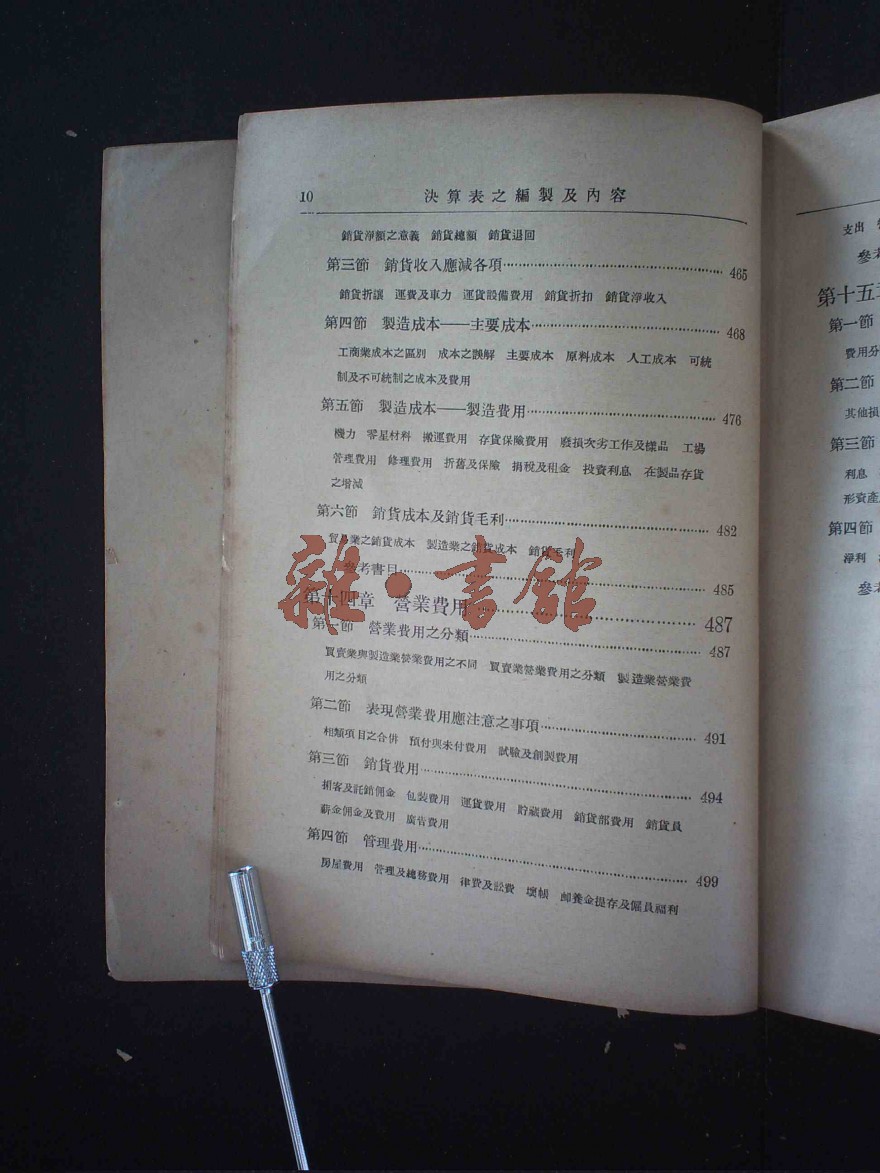 10 決算表之編製及內容
銷貨淨額之意義 銷貨總額 銷貨退回
第三節 銷貨收入應減各項 465
銷貨折讓 運費及車力 運貨設備費用 銷貨折扣 銷貨淨收入
第四節 製造成本——主要成本 468
工商業成本之區別 成本之誤解 主要成本 原料成本 人工成本 可統
制及不可統制之成本及費用
第五節 製造成本——製造費用 476
機力 零星材料 搬運費用 存貨保險費用 廢損次劣工作及樣品 工場
管理費用 修理費用 折舊及保險 捐稅及租金 投資利息 在製品存貨
之增減
第六節 銷貨成本及銷貨毛利 482
貿易業之銷貨成本 製造業之銷貨成本 銷貨毛利
參考書目 485
第十四章 營業費用 487
第一節 營業費用之分類 487
買賣業與製造業營業費用之不同 買賣業營業費用之分類 製造業營業費
用之分類
第二節 表現營業費用應注意之事項 491
相類項目之合併 預付與未付費用 試驗及創製費用
第三節 銷貨費用 494
掮客及託銷佣金 包裝費用 運貨費用 貯藏費用 銷貨部費用 銷貨員
薪金佣金及費用 廣告費用
第四節 管理費用 499
房屋費用 管理及總務費用 律費及訟費 壞帳 卹養金提存及僱員福利
雜·書館
支出
參考
第十五章
第一節
費用分
第二節
其他損
第三節
利息
形資產
第四節
淨利
參考